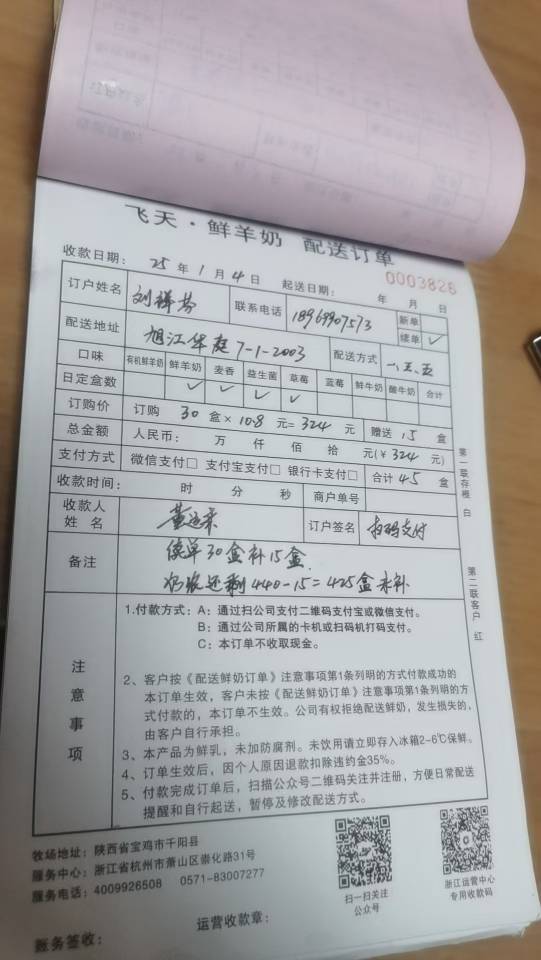 飞天·鲜羊奶 配送订单
0003826
收款日期: 25 年 1 月 4 日 起送日期: 年 月 日
订户姓名 刘祥芬 联系电话 18969907573 新单
续单 ✓
配送地址 旭江华庭 7-1-2003 配送方式 一、三、五
口味 有机鲜羊奶 鲜羊奶 麦香 益生菌 草莓 蓝莓 鲜牛奶 酸牛奶 合计
日定盒数 ✓ ✓ ✓ ✓
订购价 订购 30 盒× 10.8 元= 324 元 赠送 15 盒
总金额 人民币: 万 仟 佰 拾 元(¥ 324 元)
支付方式 微信支付□ 支付宝支付□ 银行卡支付□ 合计 45 盒
收款时间: 时 分 秒 商户单号
收款人姓名 订户签名 扫码支付
备注 续单30盒补15盒.
还剩440-15=425盒未补
第一联存根 白
第二联客户 红
注意事项
1.付款方式: A: 通过扫公司支付二维码支付宝或微信支付。
B: 通过公司所属的卡机或扫码机打码支付。
C: 本订单不收取现金。
2、客户按《配送鲜奶订单》注意事项第1条列明的方式付款成功的
本订单生效，客户未按《配送鲜奶订单》注意事项第1条列明的方
式付款的，本订单不生效。公司有权拒绝配送鲜奶，发生损失的，
由客户自行承担。
3、本产品为鲜乳，未加防腐剂。未饮用请立即存入冰箱2-6℃保鲜。
4、订单生效后，因个人原因退款扣除违约金35%。
5、付款完成订单后，扫描公众号二维码关注并注册，方便日常配送
提醒和自行起送，暂停及修改配送方式。
牧场地址: 陕西省宝鸡市千阳县
服务中心: 浙江省杭州市萧山区崇化路31号
服务电话: 4009926508 0571-83007277
扫一扫关注
公众号
浙江运营中心
专用收款码
运营收款章:
账务签收: